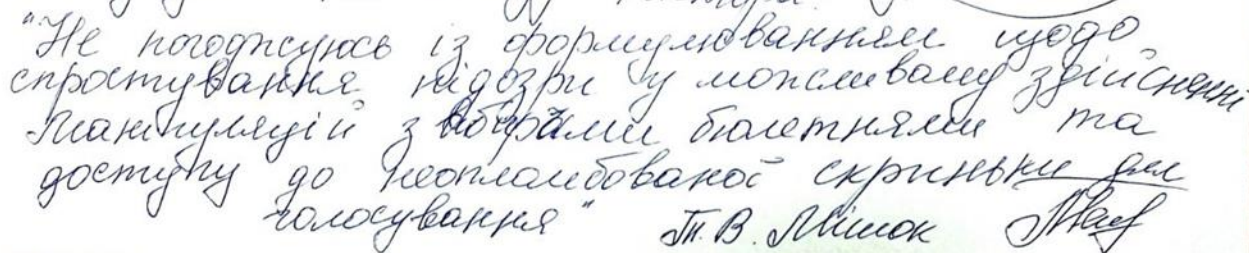 "Не погоджуюсь із формулюванням щодо
спростування підозри у можливому здійсненні
маніпуляцій з виборчими бюлетнями та
доступу до неопламбованої скриньки для
голосування"